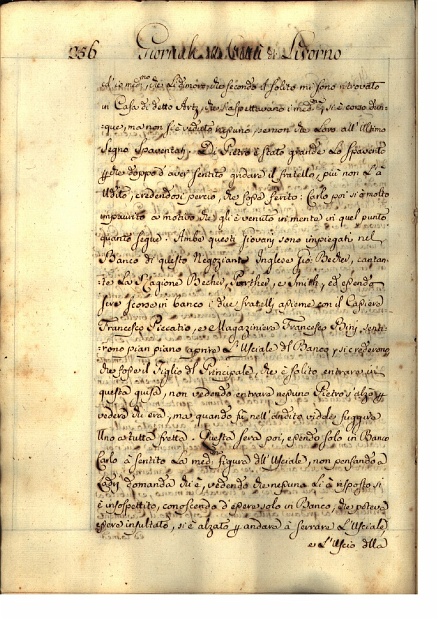 256 Giornale di Livorno
secondo il solito mi sono ritrovato
in Casa di detto
que, ma non si è veduto nessuno, se non che Loro all'Ultimo
Segno Spaventati. Di Pietro è stato grande Lo Spavento
che doppo d'aver sentito gridare il fratello, più non L'à
Udito, credendosi perciò, che fosse ferito: Carlo poi si è molto
impaurito a motivo che gli è venuto in mente in quel punto
quanto segue. Ambe questi giovani sono impiegati nel
Banco di questo Negoziante Inglese Gio: Becher, cantan:
te La Ragione Becher, Porther, e Smith, ed essendo
sere scorse in banco i due fratelli, assieme con il Cassiere
Francesco e Magazziniere Francesco Bini, senti:
rono pian piano aprire L'Usciale del Banco, e si crederono
che fosse il Figlio del Principale, che è solito entrare in
questa guisa, non vedendo entrare nessuno Pietro s'alzò
vedere chi era, ma quando fu nell'andito vidde fuggire
Uno a tutta fretta. Questa sera poi, essendo solo in Banco
Carlo à sentito La med. figura dell'Usciale, non pensando a
domanda chi è, vedendo che nessuno Li à risposto si
è insospettito, conoscendo d'essere solo in Banco, che poteva
essere insultato, si è alzato andare à serrare L'Usciale,
e L'Uscio della